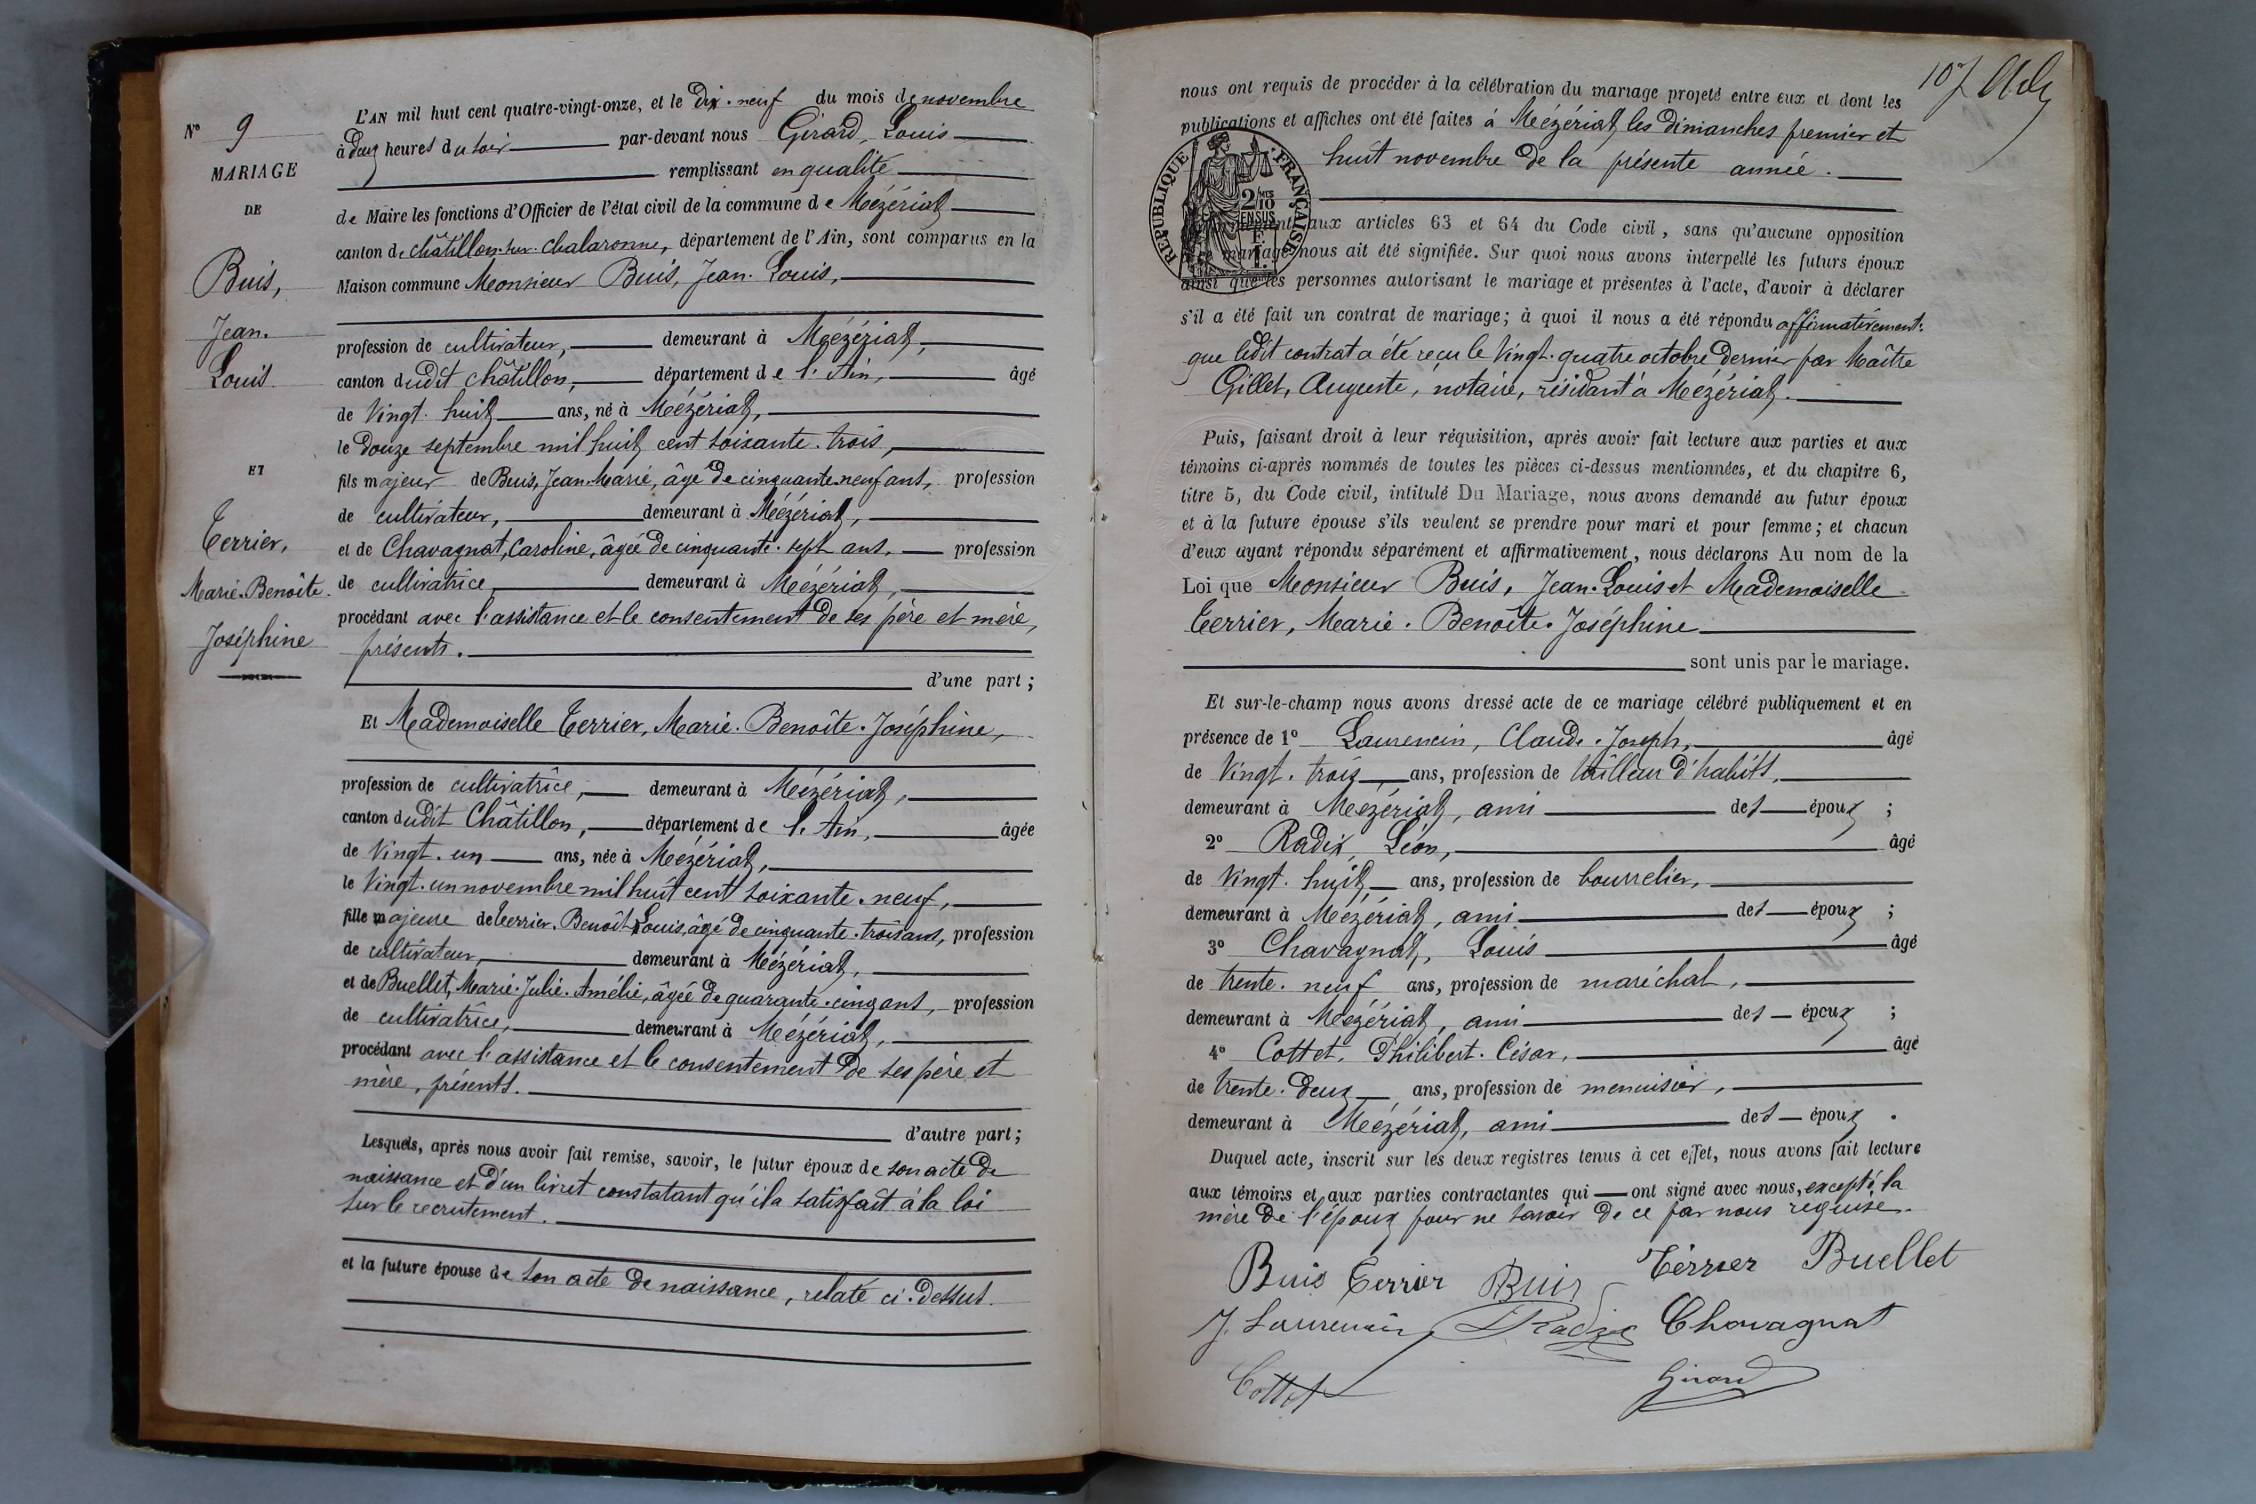 N° 9
MARIAGE
DE
Buis,
Jean.
Louis.
ET
Terrier,
Marie.Benoîte.
Joséphine
L'AN mil huit cent quatre-vingt-onze, et le Dix.neuf du mois de novembre
à deux heures du soir par-devant nous Girard, Louis
remplissant en qualité
de Maire les fonctions d'Officier de l'état civil de la commune de Mézériat
canton de Châtillon.sur.Chalaronne, département de l'Ain, sont comparus en la
Maison commune Monsieur Buis, Jean.Louis,
profession de cultivateur, demeurant à Mézériat,
canton dudit Châtillon, département de l'Ain, âgé
de Vingt.huit ans, né à Mézériat,
le douze septembre mil huit cent soixante.trois,
fils majeur de Buis, Jean.Marie, âgé de cinquante.neuf ans, profession
de cultivateur, demeurant à Mézériat,
et de Chavagnat, Caroline, âgée de cinquante.sept ans, profession
de cultivatrice demeurant à Mézériat,
procédant avec l'assistance et le consentement de ses père et mère,
présents.
d'une part ;
Et Mademoiselle Terrier, Marie.Benoîte.Joséphine,
profession de cultivatrice, demeurant à Mézériat,
canton dudit Châtillon, département de l'Ain, âgée
de Vingt.un ans, née à Mézériat,
le Vingt.un novembre mil huit cent soixante.neuf,
fille majeure de Terrier, Benoît Louis, âgé de cinquante.trois ans, profession
de cultivateur, demeurant à Mézériat,
et de Buellet, Marie.Julie.Amélie, âgée de quarante.cinq ans, profession
de cultivatrice, demeurant à Mézériat,
procédant avec l'assistance et le consentement de ses père et
mère, présents.
d'autre part ;
Lesquels, après nous avoir fait remise, savoir, le futur époux de son acte de
naissance et d'un livret constatant qu'il a satisfait à la loi
sur le recrutement.
et la future épouse de son acte de naissance, relaté ci.dessus.
107
nous ont requis de procéder à la célébration du mariage projeté entre eux et dont les
publications et affiches ont été faites à Mézériat, les dimanches premier et
huit novembre de la présente année.
REPUBLIQUE FRANÇAISE
2/10 EN SUS
aux articles 63 et 64 du Code civil, sans qu'aucune opposition
mariage nous ait été signifiée. Sur quoi nous avons interpellé les futurs époux
ainsi que les personnes autorisant le mariage et présentes à l'acte, d'avoir à déclarer
s'il a été fait un contrat de mariage; à quoi il nous a été répondu affirmativement.
que ledit contrat a été reçu le Vingt.quatre octobre dernier par Maître
Gillet, Auguste, notaire, résidant à Mézériat.
Puis, faisant droit à leur réquisition, après avoir fait lecture aux parties et aux
témoins ci-après nommés de toutes les pièces ci-dessus mentionnées, et du chapitre 6,
titre 5, du Code civil, intitulé Du Mariage, nous avons demandé au futur époux
et à la future épouse s'ils veulent se prendre pour mari et pour femme; et chacun
d'eux ayant répondu séparément et affirmativement, nous déclarons Au nom de la
Loi que Monsieur Buis, Jean.Louis et Mademoiselle
Terrier, Marie.Benoîte.Joséphine
sont unis par le mariage.
Et sur-le-champ nous avons dressé acte de ce mariage célébré publiquement et en
présence de 1° Laurencin, Claude.Joseph, âgé
de Vingt.trois ans, profession de tailleur d'habits,
demeurant à Mézériat, ami des époux ;
2° Radix, Léon, âgé
de Vingt.huit ans, profession de bourrelier,
demeurant à Mézériat, ami des époux ;
3° Chavagnat, Louis âgé
de trente.neuf ans, profession de maréchal,
demeurant à Mézériat, ami des époux ;
4° Cottet, Philibert.César, âgé
de trente.deux ans, profession de menuisier,
demeurant à Mézériat, ami des époux .
Duquel acte, inscrit sur les deux registres tenus à cet effet, nous avons fait lecture
aux témoins et aux parties contractantes qui ont signé avec nous, excepté la
mère de l'époux pour ne savoir de ce par nous requise.
Buis Terrier Buis Terrier Buellet
J. Laurencin L Radix Chavagnat
Cottet Girard